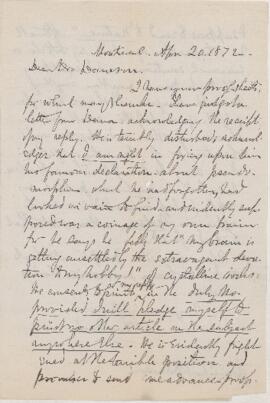 Montreal Apr 20. 1872 –
Dear Mrs
I have your proof sheets
for which many thanks. I have just got a
letter from Dana acknowledging the receipt
of my reply. He is terribly disturbed, acknow
ledges that I am right in forcing upon him
his famous declaration about pseudo-
morphism, which he had forgotten, had
looked in vain to find, and evidently sup
posed was a coinage of my own brain
for he says he that my brain is
getting unsettled by the extravagant devo
tion to my hobby!" of crystalline rocks.
He consents to print in the July No.
provided I will pledge myself to
print no other article on the subject
anywhere else. He is evidently fright
ened at the terrible position and
promises to send me advance proofs